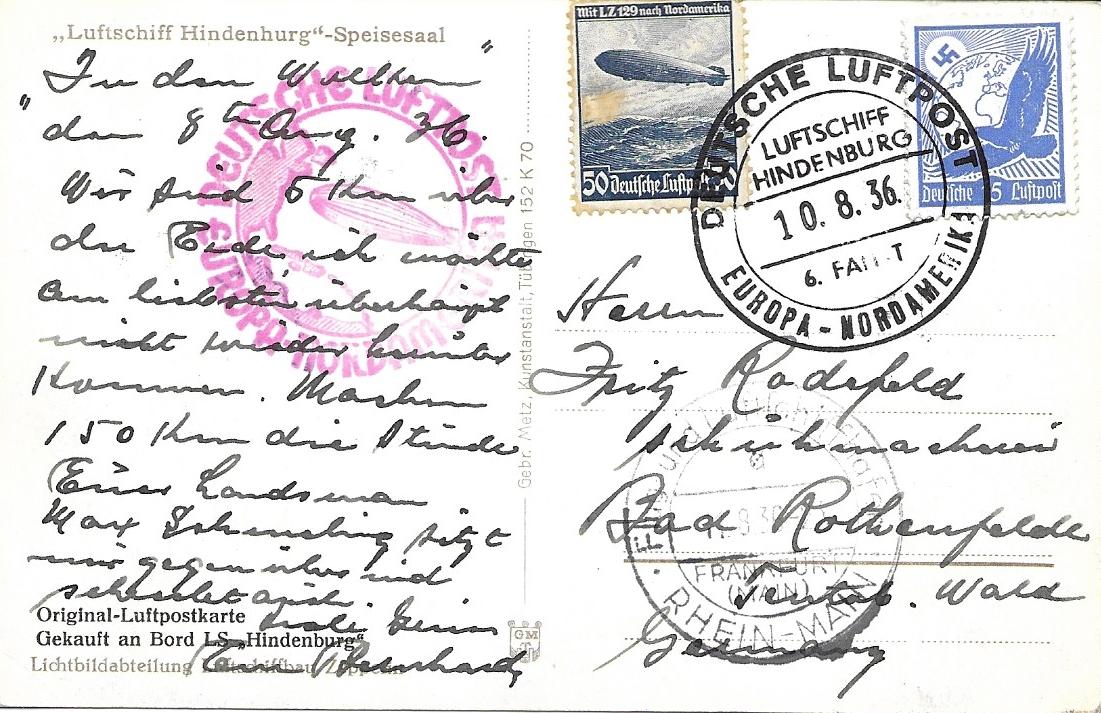 „Luftschiff Hindenburg“-Speisesaal
„In den Wolken“
den 8ten Aug. 36.
Wir sind 5 Km über
der Erde, ich möchte
am liebsten überhaupt
nicht wieder herunter
kommen. Machen
150 Km die Stunde
Euer Landsman
Max Schmeling sitzt
mir gegenüber und
schreibt auch.
Bernhard
Original-Luftpostkarte
Gekauft an Bord LS „Hindenburg“
Lichtbildabteilung Luftschiffbau Zeppelin
DEUTSCHE LUFTPOST
EUROPA-NORDAMERIKA
Gebr. Metz, Kunstanstalt, Tübingen 152 K 70
GM
Mit LZ 129 nach Nordamerika
50 Deutsche Luftpost 50
Deutsche 5 Luftpost
DEUTSCHE LUFTPOST
LUFTSCHIFF
HINDENBURG
10.8.36.
6. FAHRT
EUROPA-NORDAMERIKA
Herrn
Fritz Rodefeld
Bad Rothenfelde
Teutob. Wald
Germany
FRANKFURT
(MAIN)
RHEIN-MAIN